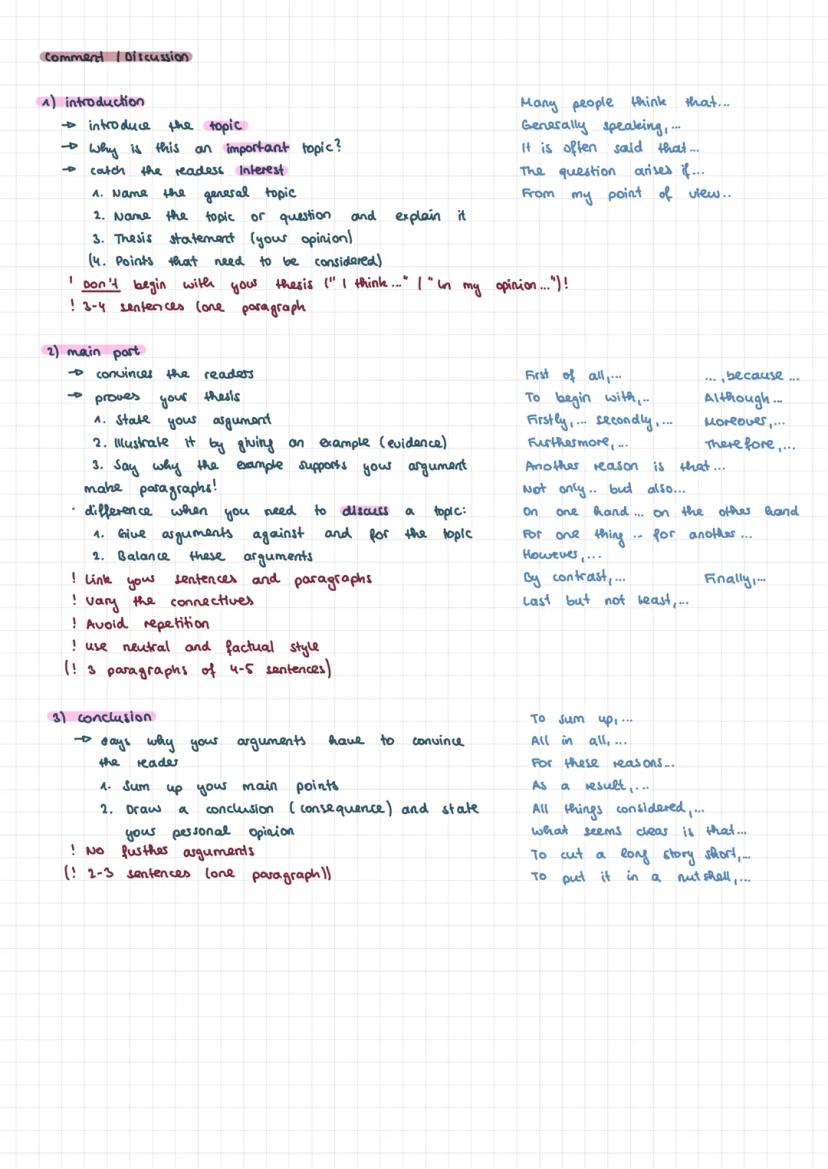 Comment / Discussion
1) introduction
Many people think that...
→ introduce the topic
Generally speaking,...
→ Why is this an important topic?
It is often said that...
→ catch the readers interest
The question arises if...
1. Name the general topic
From my point of view..
2. Name the topic or question and explain it
3. Thesis statement (your opinion)
(4. Points that need to be considered)
! Don't begin with your thesis ("I think..." / "In my opinion...")!
! 3-4 sentences (one paragraph
2) main part
→ convinces the readers
First of all,...
..., because ...
→ proves your thesis
To begin with,..
Although...
1. State your argument
Firstly,... secondly,...
Moreover,...
2. Illustrate it by giving an example (evidence)
Furthermore,...
Therefore,...
3. Say why the example supports your argument
Another reason is that...
make paragraphs!
Not only.. but also...
· difference when you need to discuss a topic:
On one hand... on the other hand
1. Give arguments against and for the topic
For one thing ... for another ...
2. Balance these arguments
However,...
! Link your sentences and paragraphs
By contrast,...
Finally,...
! Vary the connectives
Last but not least,...
! Avoid repetition
! use neutral and factual style
(! 3 paragraphs of 4-5 sentences)
3) conclusion
To sum up,...
→ says why your arguments have to convince
All in all,...
the reader
For these reasons...
1. Sum up your main points
As a result,...
2. Draw a conclusion (consequence) and state
All things considered,...
your personal opinion
What seems clear is that...
! No further arguments
To cut a long story short,...
(! 2-3 sentences (one paragraph))
To put it in a nutshell,...